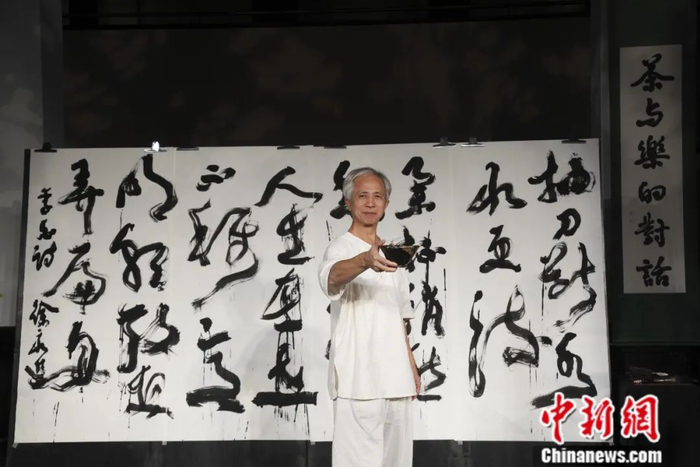 茶与樂的對話
抽刀斷水
水更流
舉杯消愁
人生在世
不稱意
明朝散髮
弄扁舟
李白詩 徐永進
中新网
Chinanews.com